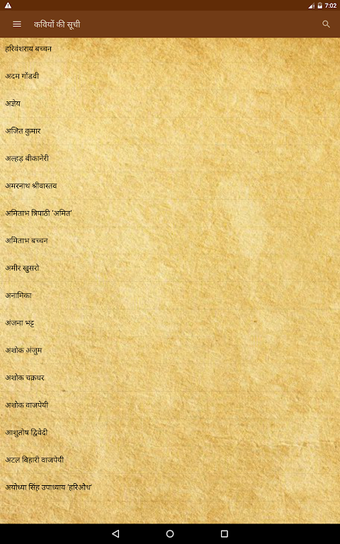 7:02
कवियों की सूची
हरिवंशराय बच्चन
अदम गोंडवी
अज्ञेय
अजित कुमार
अल्हड़ बीकानेरी
अमरनाथ श्रीवास्तव
अमिताभ त्रिपाठी 'अमित'
अमिताभ बच्चन
अमीर खुसरो
अनामिका
अंजना भट्ट
अशोक अंजुम
अशोक चक्रधर
अशोक वाजपेयी
आशुतोष द्विवेदी
अटल बिहारी वाजपेयी
अयोध्या सिंह उपाध्याय 'हरिऔध'